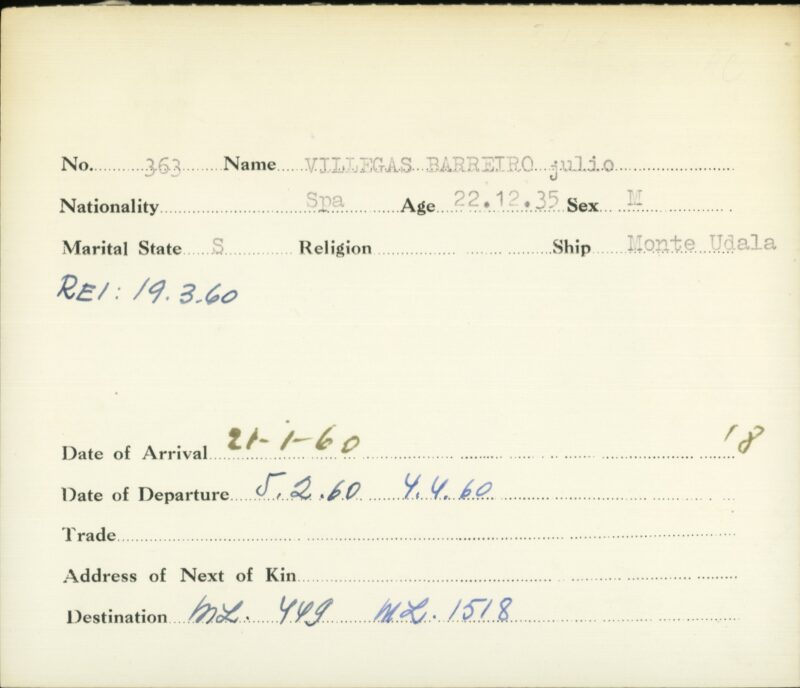 No. 363 Name VILLEGAS BARREIRO julio
Nationality Spa Age 22.12.35 Sex M
Marital State S Religion Ship Monte Udala
REI: 19.3.60
Date of Arrival 21-1-60 18
Date of Departure 5.2.60 4.4.60
Trade
Address of Next of Kin
Destination ML. 449 ML. 1518